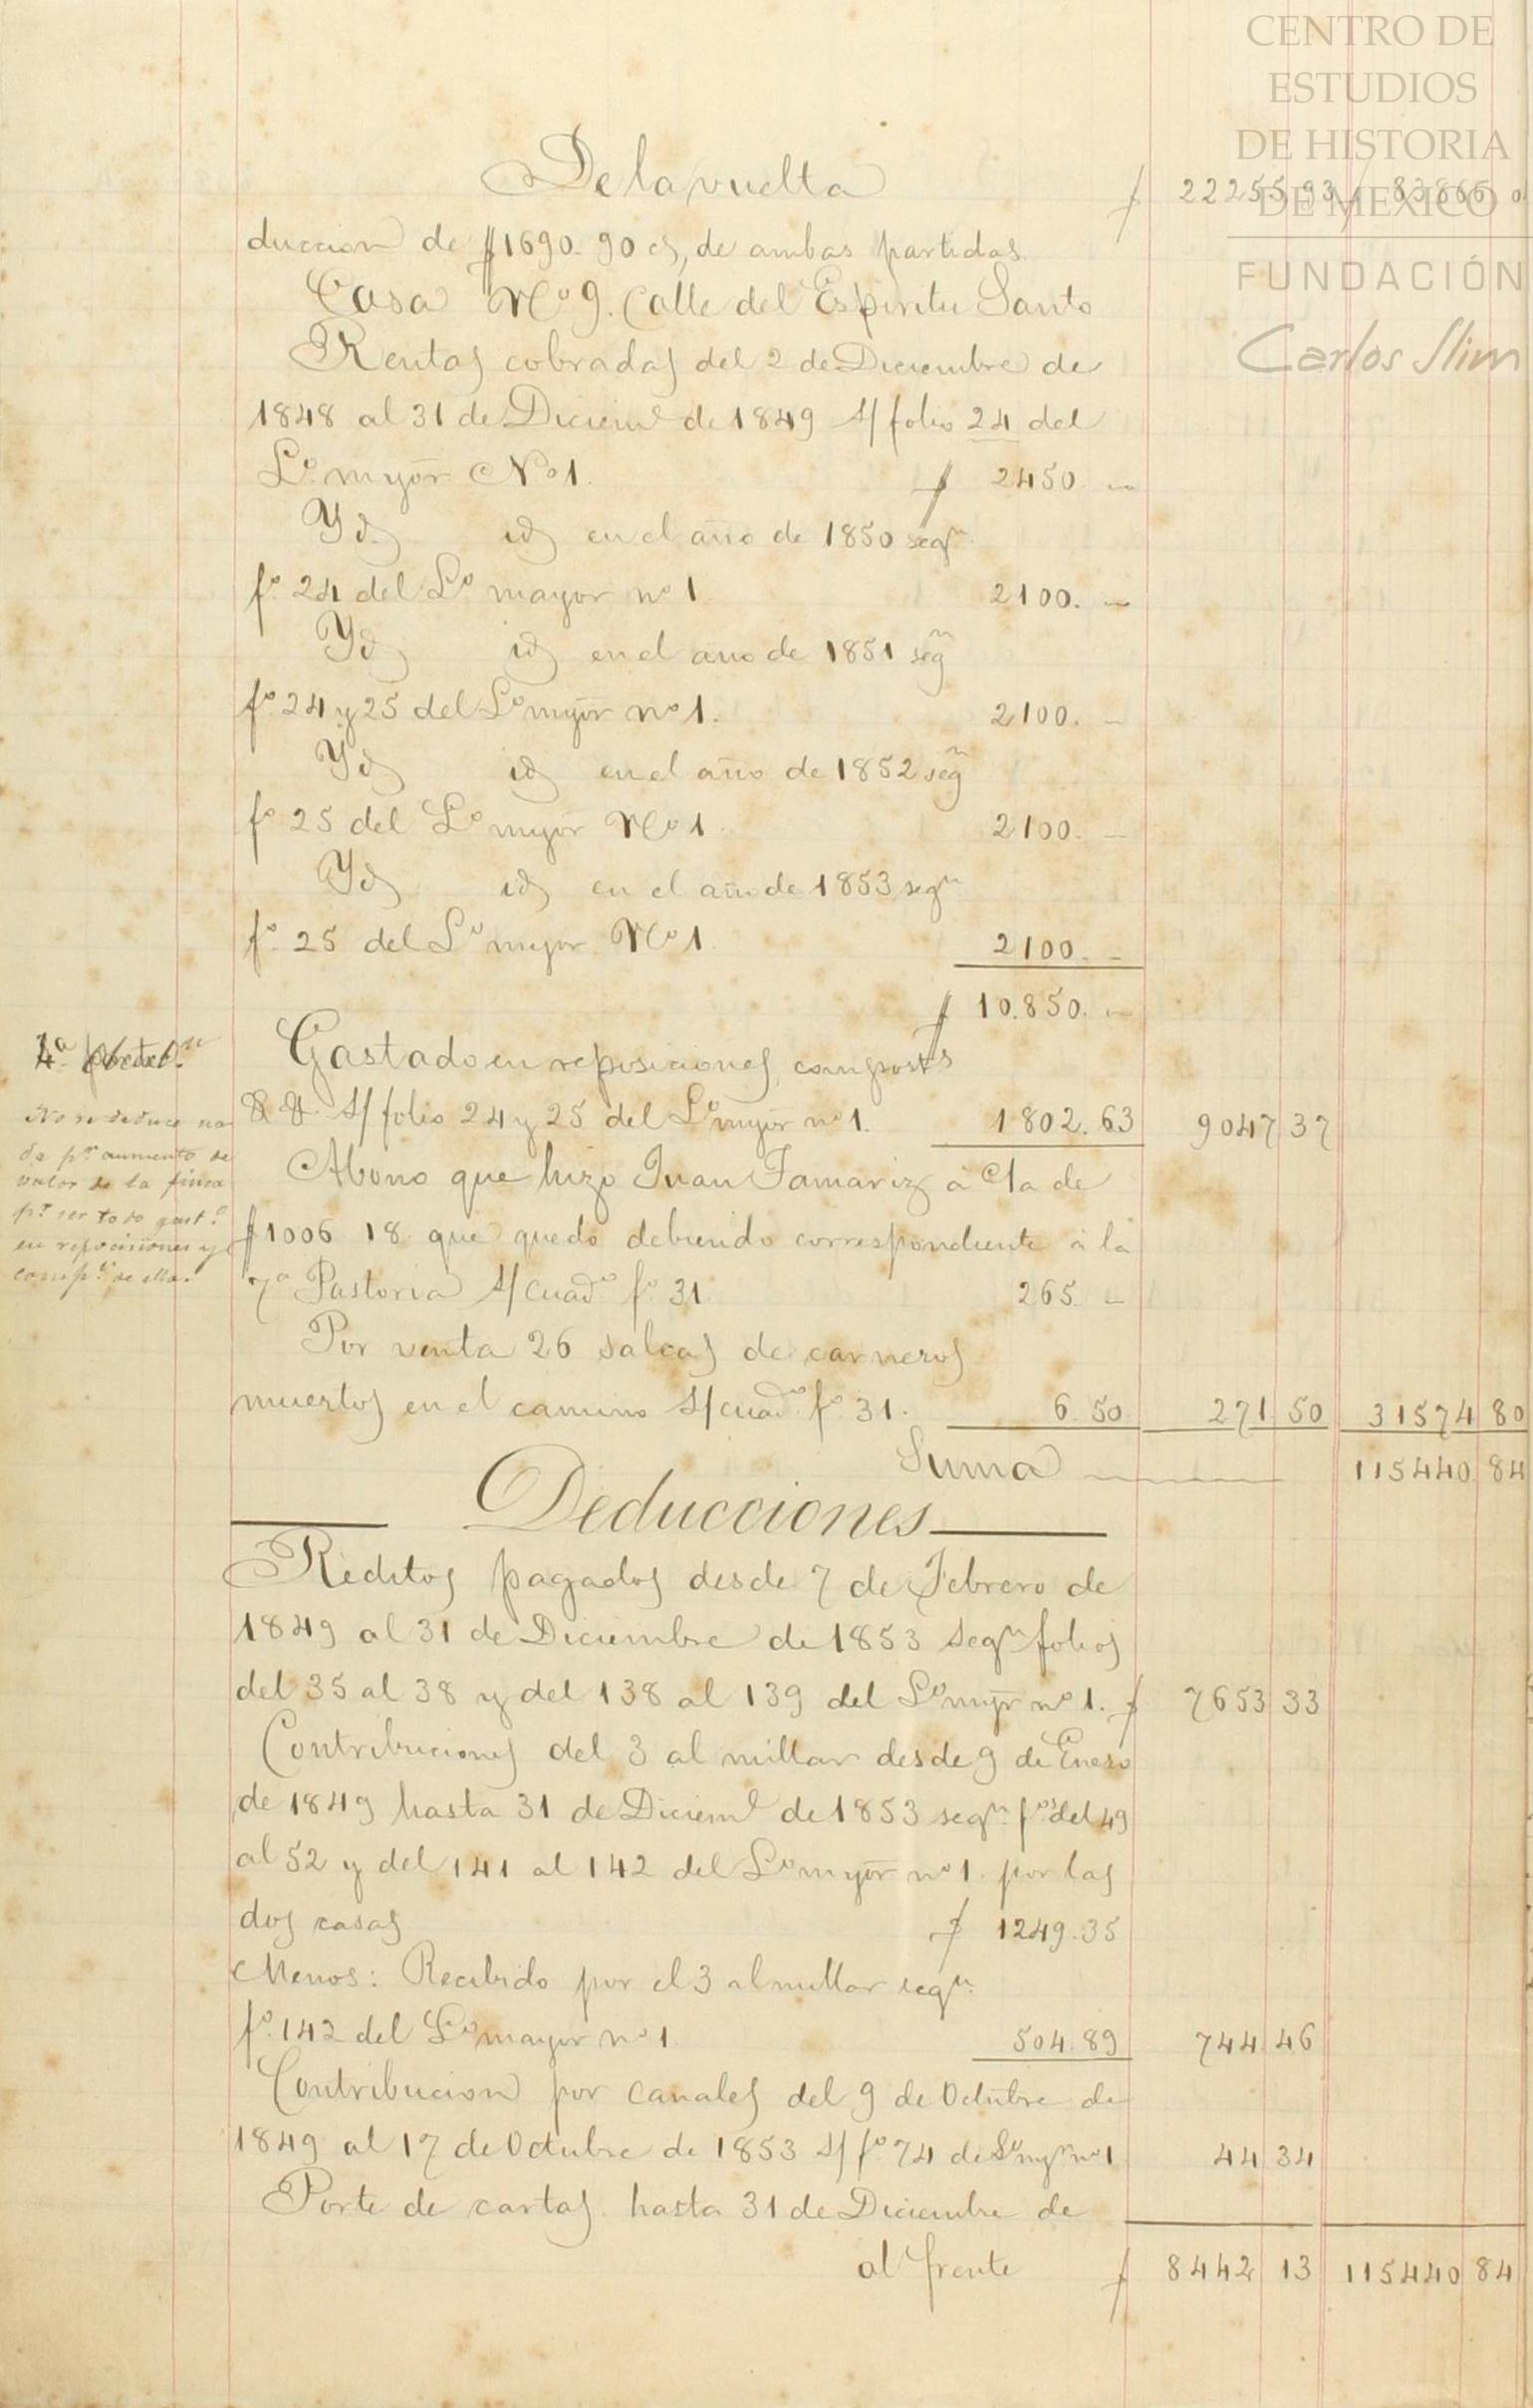 CENTRO DE
ESTUDIOS
DE HISTORIA
DE MEXICO
FUNDACIÓN
Carlos Slim
De la vuelta $ 22255 93 83866 0
duccion de $1690. 90 cs, de ambas partidas.
Casa No 9. Calle del Espiritu Santo
Rentas cobradas del 2 de Diciembre de
1848 al 31 de Diciem.e de 1849 s/ folio 24 del
Lo. myor No 1. $ 2450. —
Yd. id en el año de 1850 segn.
fo. 24 del Lo mayor no 1. 2100. —
Yd id en el año de 1851 segn
fo. 24 y 25 del Lo myor no 1. 2100. —
Yd id en el año de 1852 segn
fo 25 del Lo myor No 1. 2100. —
Yd id en el año de 1853 segn
fo. 25 del Lo myor No 1. 2100. —
$ 10.850. —
4a
Gastado en reposiciones, composts
& & s/ folio 24 y 25 del Lo myor no 1. 1802. 63 9047 37
No se deduce na
da pr. aumento de
valor de la finca
pr. ser todo gast.o
en reposiciones y
comp.s de ella.
Abono que hizo Juan Tamariz á c/a de
$1006 18 que quedó debiendo correspondiente á la
7a Pastoria s/ cuado. fo. 31. 265. —
Por venta 26 saleas de carneros
muertos en el camino s/ cuado. fo. 31. 6. 50 271 50 31574 80
Suma — 115440. 84
Deducciones
Reditos pagados desde 7 de Febrero de
1849 al 31 de Diciembre de 1853 segn folios
del 35 al 38 y del 138 al 139 del Lo myr no 1. $ 7653 33
Contribuciones del 3 al millar desde 9 de Enero
de 1849 hasta 31 de Diciem.e de 1853 segn. fos del 49
al 52 y del 141 al 142 del Lo myor no 1. por las
dos casas $ 1249. 35
Menos: Recibido por el 3 al millar segn.
fo. 142 del Lo mayor no 1. 504. 89 744 46
Contribucion por canales del 9 de Octubre de
1849 al 17 de Octubre de 1853 s/ fo. 74 de Lo myr no 1 44 34
Porte de cartas hasta 31 de Diciembre de
al frente $ 8442 13 115440 84